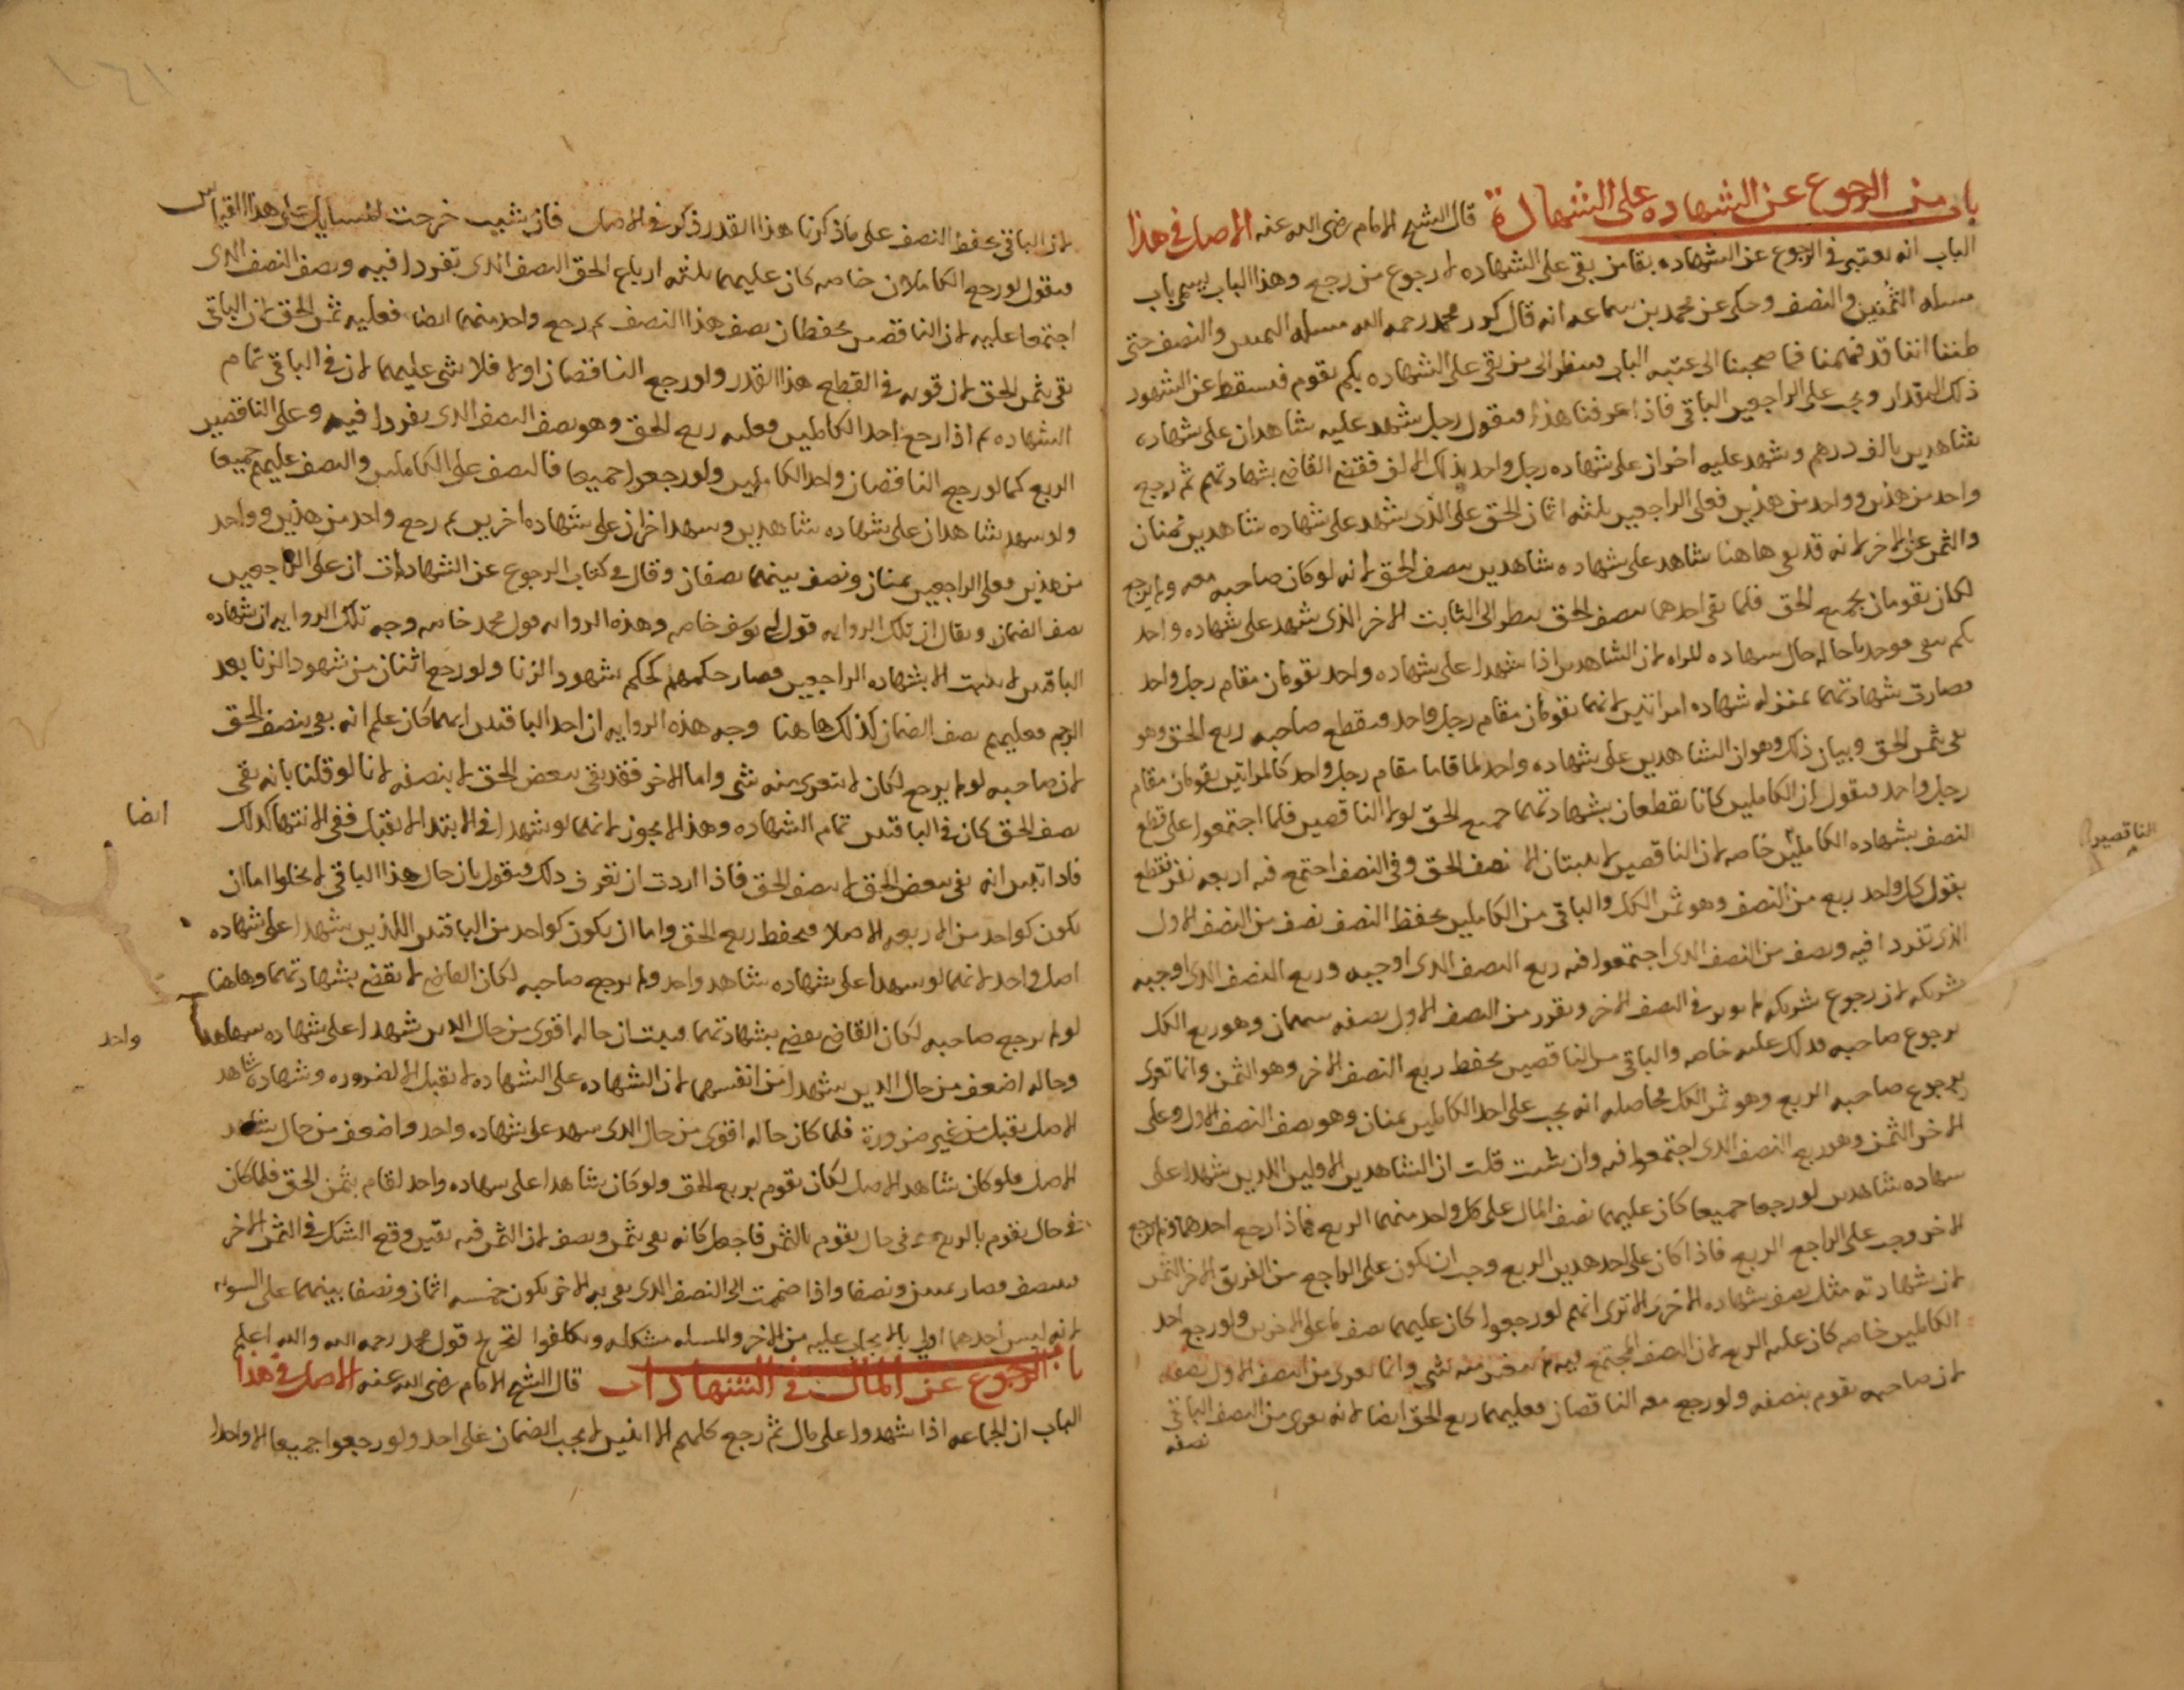 باب من الرجوع عن الشهاده على الشهادة قال الشيخ الامام رضى الله عنه الاصل في هذا
الباب انه يعتبر في الرجوع عن الشهاده بقا من بقى على الشهاده لا رجوع من رجع وهذا الباب يسمى باب
مسله الثمنين والنصف وحكى عن محمد بن سماعه انه قال كرر محمد رحمه الله مسله الثمنين والنصف حتى
ظننا اننا قد فهمنا فما صحبنا الى عتبه الباب فينظر الى من بقى على الشهاده بكم يقوم فيسقط عن الشهود
ذلك المقدار ويجب على الراجعين الباقي فاذا عرفنا هذا فنقول رجل شهد عليه شاهدان على شهاده
شاهدين بالف درهم وشهد عليه اخران على شهاده رجل واحد بذلك الالف فقضى القاضي بشهادتهم ثم رجع
واحد من هذين وواحد من هذين فعلى الراجعين ثلثه اثمان الحق على الذى شهد على شهاده شاهدين ثمنان
والثمن على الاخر لانه قد بقى هاهنا شاهد على شهاده شاهدين بنصف الحق لانه لو كان صاحبه معه ولم يرجع
لكان يقومان بجميع الحق فلما بقى احدهما بنصف الحق ينظر الى الثابت الاخر الذى شهد على شهاده واحد
بكم بقى فوجدنا حاله حال شهاده المراه لان الشاهدين اذا شهدا على شهاده واحد يقومان مقام رجل واحد
فصارت شهادتهما بمنزله شهاده امراتين لانهما يقومان مقام رجل واحد فيقطع صاحبه ربع الحق وهو
بقى ثمن الحق وبيان ذلك وهو ان الشاهدين على شهاده واحد لما قاما مقام رجل واحد كالمراتين يقومان مقام
رجل واحد فنقول ان الكاملين كانا يقطعان بشهادتهما جميع الحق لولا الناقصين فلما اجتمعوا على قطع
النصف بشهاده الكاملين خاصه لان الناقصين لا يثبتان الا نصف الحق وفي النصف اجتمع فيه اربعه نفر يقطع
بقول كل واحد ربع من النصف وهو ثمن الكل والباقي من الكاملين يحفظ النصف نصف من النصف الاول
الذى تفردا فيه ونصف من النصف الذى اجتمعوا فيه ربع النصف الذى اوجبه وربع النصف الذى اوجبه
شريكه لان رجوع شريكه لا يوثر في النصف الاخر ويقرر من النصف الاول نصفه ثمنان وهو ربع الكل
برجوع صاحبه فذلك عليه خاصه والباقي من الناقصين يحفظ ربع النصف الاخر وهو الثمن وانما توى
برجوع صاحبه الربع وهو ثمن الكل فحاصله انه يجب على احد الكاملين ثمنان وهو نصف النصف الاول وعلى
الاخر الثمن وهو ربع النصف الذى اجتمعوا فيه وان شيت قلت ان الشاهدين الاولين اللذين شهدا على
شهاده شاهدين لو رجعا جميعا كان عليهما نصف المال على كل واحد منهما الربع فاذا رجع احدهما ولم يرجع
الاخر وجب على الراجع الربع فاذا كان على احد هذين الربع وجب ان يكون على الراجع من الفريق الاخر الثمن
لان شهادته مثل نصف شهاده الاخر الا ترى انهم لو رجعوا كان عليهما نصف ما على الاخرين ولو رجع احد
الكاملين خاصه كان عليه الربع لان النصف المجتمع فيه لم يتغير منه شى وانما توى من النصف الاول نصفه
لان صاحبه يقوم بنصفه ولو رجع معه الناقصان فعليهما ربع الحق ايضا لانه توى من النصف الباقي
نصفه
الناقصين
لان الباقي يحفظ النصف على ما ذكرنا هذا القدر ذكر في الاصل فان شيت خرجت المسايل على هذا القياس
فنقول لو رجع الكاملان خاصه كان عليهما ثلثه ارباع الحق النصف الذى تفردا فيه ونصف النصف الذى
اجتمعا عليه لان الناقصين يحفظان نصف هذا النصف ثم رجع واحد منهما ايضا فعليه ثمن الحق لان الباقي
بقى بثمن الحق لان قوته في القطع هذا القدر ولو رجع الناقصان اولا فلا شى عليهما لان في الباقي تمام
الشهاده ثم اذا رجع احد الكاملين فعليه ربع الحق وهو نصف النصف الذى تفردا فيه وعلى الناقصين
الربع كما لو رجع الناقصان واحد الكاملين ولو رجعوا جميعا فالنصف على الكاملين والنصف عليهم جميعا
ولو شهد شاهدان على شهاده شاهدين وشهد اخران على شهاده اخرين ثم رجع واحد من هذين وواحد
من هذين فعلى الراجعين ثمنان ونصف بينهما نصفان وقال في كتاب الرجوع عن الشهادات ان على الراجعين
نصف الضمان ويقال ان تلك الروايه قول ابي يوسف خاصه وهذه الروايه قول محمد خاصه وجه تلك الروايه ان شهاده
الباقين لا تثبت الا بشهاده الراجعين فصار حكمهم كحكم شهود الزنا ولو رجع اثنان من شهود الزنا بعد
الرجم فعليهم نصف الضمان كذلك هاهنا وجه هذه الروايه ان احد الباقين ايهما كان علم انه بقى بنصف الحق
لان صاحبه لو لم يرجع لكان لا يتوى منه شى واما الاخر فقد بقى ببعض الحق لا بنصفه لانا لو قلنا بانه بقى
نصف الحق كان في الباقين تمام الشهاده وهذا لا يجوز لانهما لو شهدا في الابتدا لا يقبل ففي الانتها كذلك
فاذا تبين انه بقى ببعض الحق لا بنصف الحق فاذا اردت ان تعرف ذلك فنقول بان حال هذا الباقي لا يخلوا اما ان
يكون كواحد من الاربعه الاصلا فيحفظ ربع الحق واما ان يكون كواحد من الباقين اللذين شهدا على شهاده
اصل واحد لانهما لو شهدا على شهاده شاهد واحد ولم يرجع صاحبه لكان القاضي لا يقضي بشهادتهما وهاهنا
لو لم يرجع صاحبه لكان القاضي يقضي بشهادتهما فيبت ان حاله اقوى من حال الذين شهدا على شهاده شاهد
وحاله اضعف من حال الذين شهدا من انفسهما لان الشهاده على الشهاده لا يقبل الا لضروره وشهاده شاهد
الاصل يقبل من غير ضرورة فلما كان حاله اقوى من حال الذى شهد على شهاده واحد واضعف من حال شاهد
الاصل فلو كان شاهد الاصل لكان يقوم بربع الحق ولو كان شاهدا على شهاده واحد لقام بثمن الحق فلما كان
في حال يقوم بالربع وفي حال يقوم بالثمن فاجعل كانه بقى بثمن ونصف لان الثمن فيه يقين وقع الشك في الثمن الاخر
فينصف فصار ثمنين ونصفا واذا ضممت الى النصف الذى بقى به الاخر يكون خمسه اثمان ونصفا بينهما على السويه
لانه ليس احدهما اولى بالايجاب عليه من الاخر والمسله مشكله وتكلفوا لتخريج قول محمد رحمه الله والله اعلم
باب الرجوع عن المال في الشهادات قال الشيخ الامام رضى الله عنه الاصل في هذا
الباب ان الجماعه اذا شهدوا على مال ثم رجع كلهم الا اثنين لا يجب الضمان على احد ولو رجعوا جميعا الا واحدا
ايضا
واحد